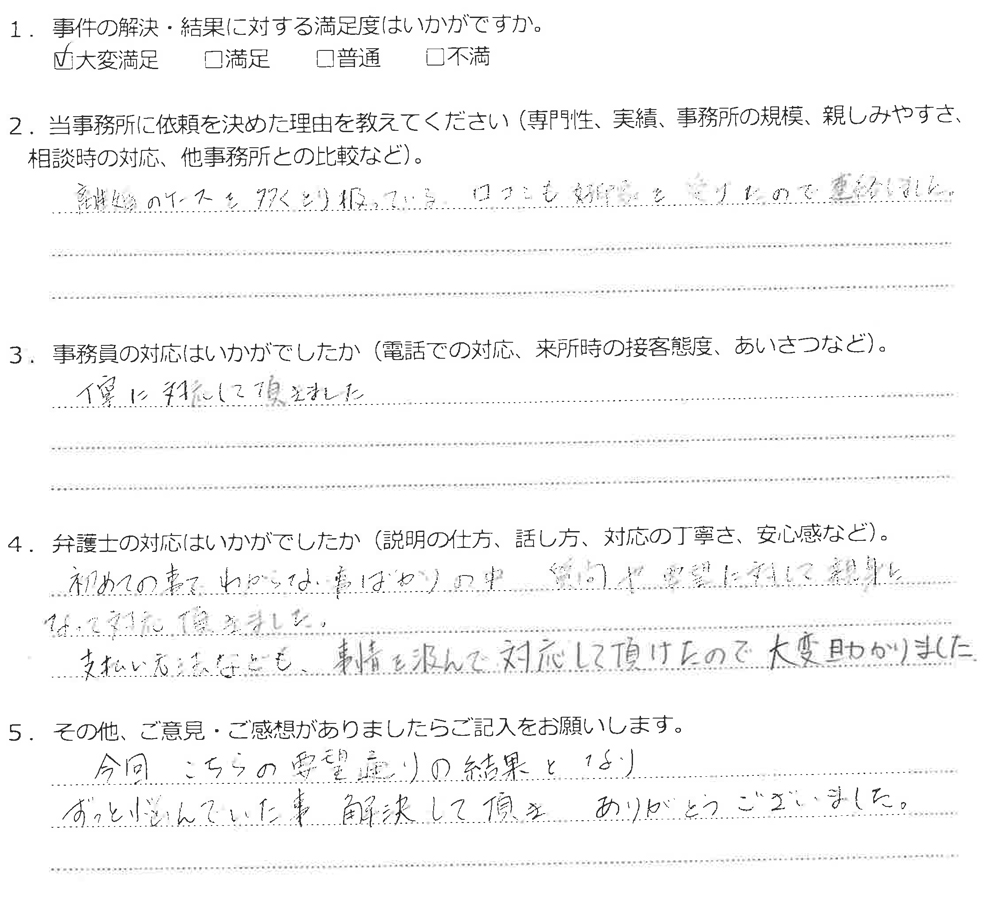 1．事件の解決・結果に対する満足度はいかがですか。
☑大変満足 □満足 □普通 □不満
2．当事務所に依頼を決めた理由を教えてください（専門性、実績、事務所の規模、親しみやすさ、
相談時の対応、他事務所との比較など）。
離婚のケースを多くとり扱っている 口コミも好印象を受けたので連絡しました。
3．事務員の対応はいかがでしたか（電話での対応、来所時の接客態度、あいさつなど）。
丁寧に対応して頂きました
4．弁護士の対応はいかがでしたか（説明の仕方、話し方、対応の丁寧さ、安心感など）。
初めての事で わからない事ばかりの中 質問や要望に対して親身に
なって対応頂きました。
支払い方法なども、事情を汲んで対応して頂けたので大変助かりました
5．その他、ご意見・ご感想がありましたらご記入をお願いします。
今回 こちらの要望通りの結果となり
ずっと悩んでいた事 解決して頂き ありがとうございました。